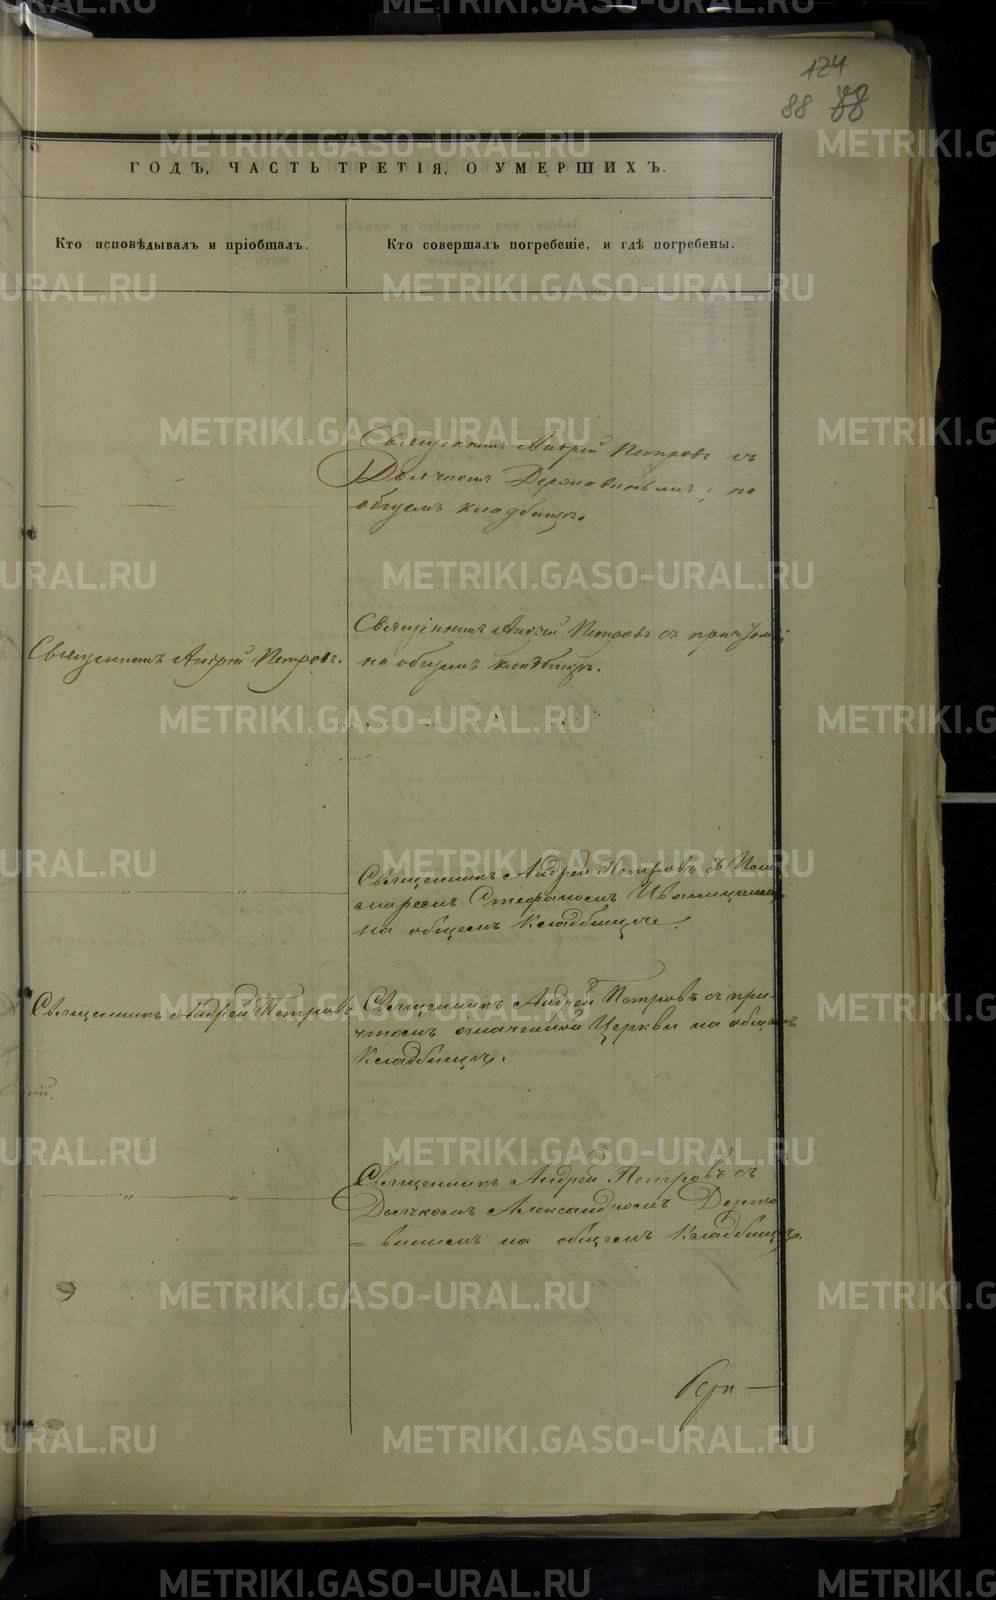 124
88 88
ГОДЪ, ЧАСТЬ ТРЕТІЯ, О УМЕРШИХЪ.
Кто исповѣдывалъ и пріобщалъ.
Кто совершалъ погребеніе, и гдѣ погребены.
Священникъ Андрей Петровъ съ
Дьячкомъ Державинымъ, на
общемъ кладбищѣ.
Священникъ Андрей Петровъ.
Священникъ Андрей Петровъ съ причтомъ
на общемъ кладбищѣ.
Священникъ Андрей Петровъ съ Поно-
маремъ Стефаномъ
на общемъ Кладбищѣ.
Священникъ Андрей Петровъ
Священникъ Андрей Петровъ съ при-
чтомъ означенной Церкви на общемъ
Кладбищѣ.
Священникъ Андрей Петровъ съ
Дьячкомъ Александромъ Держа
=винымъ на общемъ Кладбищѣ.
METRIKI.GASO-URAL.RU